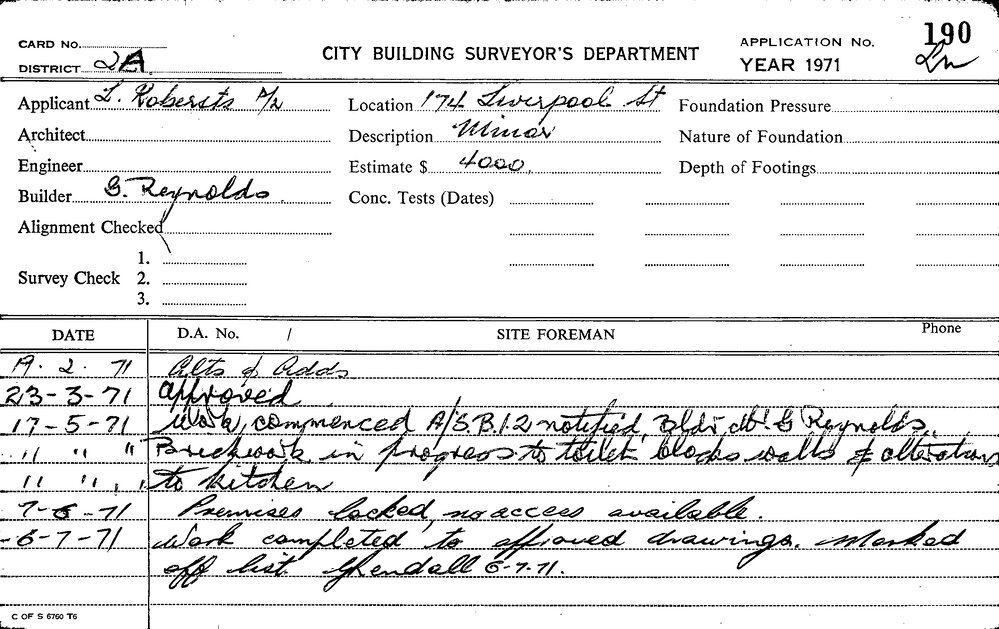 CARD No.
DISTRICT 2A
CITY BUILDING SURVEYOR'S DEPARTMENT
APPLICATION No. 190
YEAR 1971
Applicant L. Robersts P/L
Architect
Engineer
Builder G. Reynolds
Alignment Checked
Survey Check 1.
2.
3.
Location 174 Liverpool St
Description Minor
Estimate $ 4000.
Conc. Tests (Dates)
Foundation Pressure
Nature of Foundation
Depth of Footings
DATE D.A. No. / SITE FOREMAN Phone
19. 2. 71 Alts & Adds
23-3-71 approved
17-5-71 Work commenced A/S.B.1.2 notified, Bldr G Reynolds.
" " " Brickwork in progress to toilet blocks walls & alterations
" " " to kitchen
7-6-71 Premises locked, no access available.
-6-7-71 Work completed to approved drawings. Marked
off list. 6-7-71.
C OF S 6760 T6